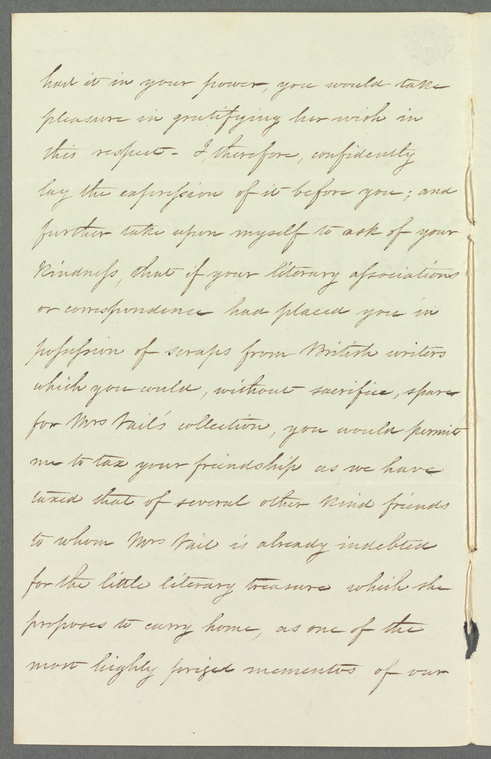 had it in your power, you would take
pleasure in gratifying her wish in
this respect - I, therefore, confidently
lay the expression of it before you; and
further take upon myself to ask of your
kindness, that if your literary associations
or correspondence had placed you in
possession of scraps from British writers
which you could, without sacrifice, spare
for Mrs Vail's collection, you would permit
me to tax your friendship as we have
taxed that of several other kind friends
to whom Mrs Vail is already indebted
for the little literary treasure which she
proposes to carry home, as one of the
most highly prized mementos of our